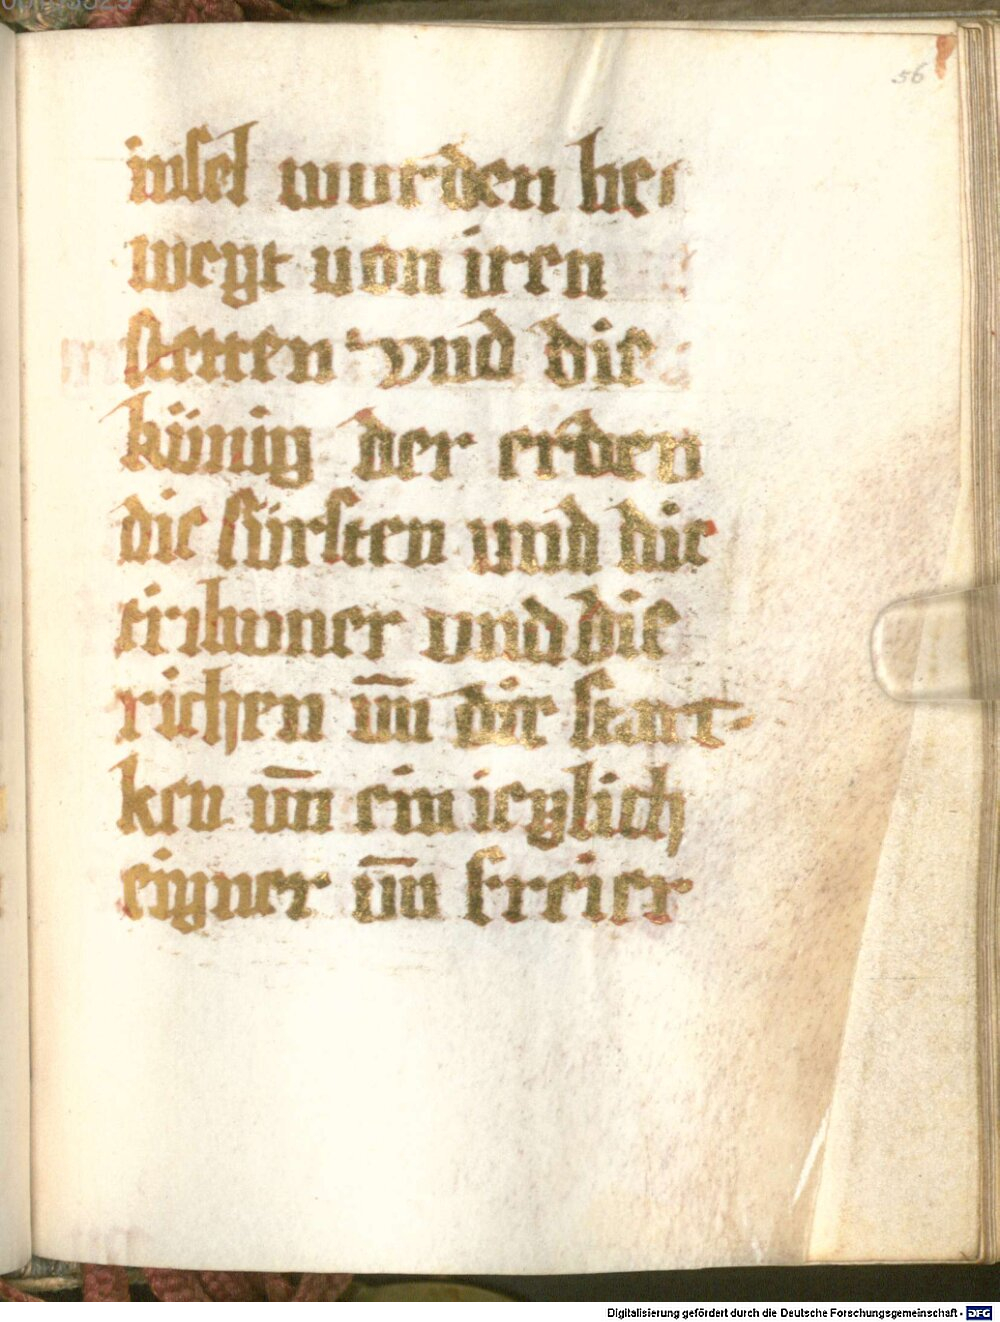 56
insel wurden be-
wegt von iren
stetten vnd die
künig der erden
die fürsten vnd die
tribuner vnd die
richen vn̄ die star-
ken vn̄ ein ieglich
eigner vn̄ freier
Digitalisierung gefördert durch die Deutsche Forschungsgemeinschaft - DFG